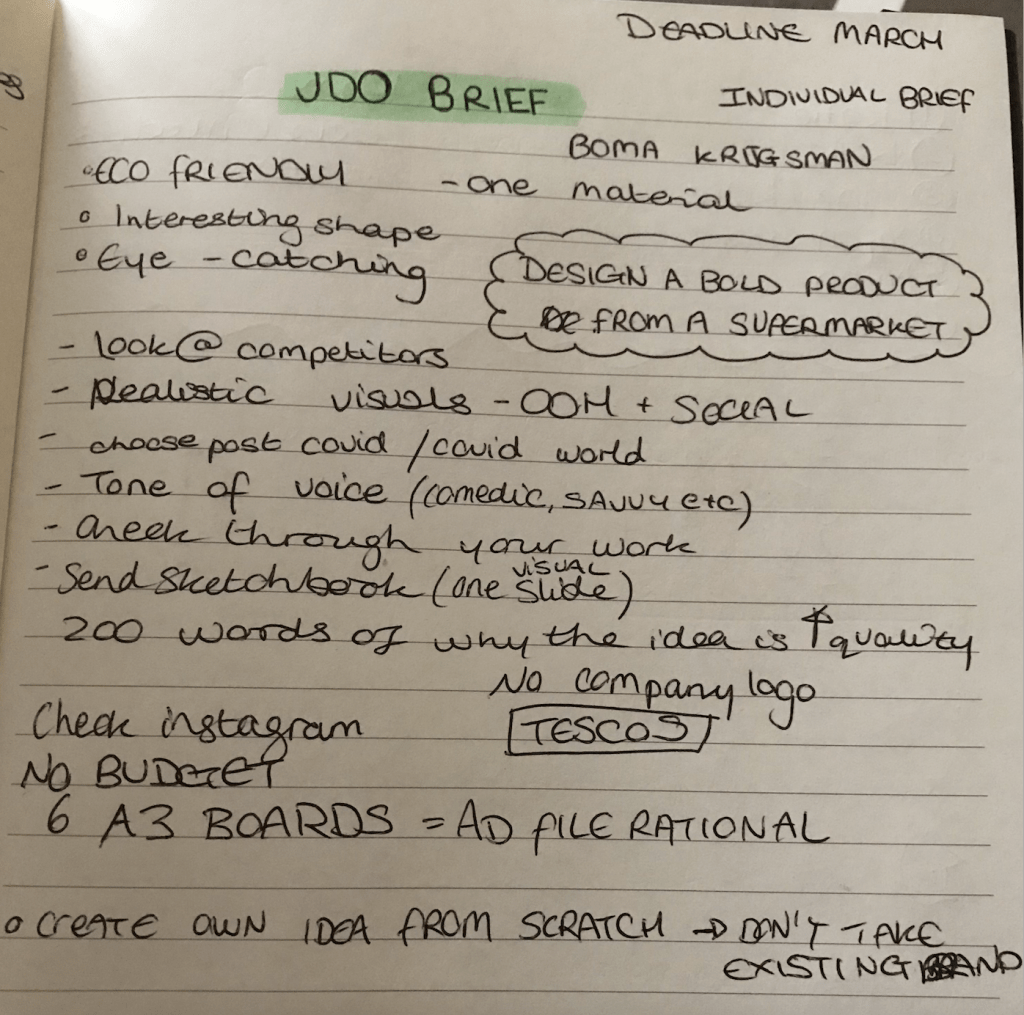 DEADLINE MARCH
JDO BRIEF
INDIVIDUAL BRIEF
BOMA KRIJGSMAN
• ECO FRIENDLY - one material
• Interesting shape
• Eye - catching
DESIGN A BOLD PRODUCT
FROM A SUPERMARKET
- look @ competitors
- Realistic visuals - OOH + SOCIAL
- choose post covid / covid world
- Tone of voice (comedic, SAVVY etc)
- Check through your work
- Send sketchbook (one VISUAL slide)
200 words of why the idea is ↑ quality
No company logo
Check instagram
TESCOS
NO BUDGET
6 A3 BOARDS = AD FILE RATIONAL
• CREATE OWN IDEA FROM SCRATCH → DON'T TAKE
EXISTING BRAND